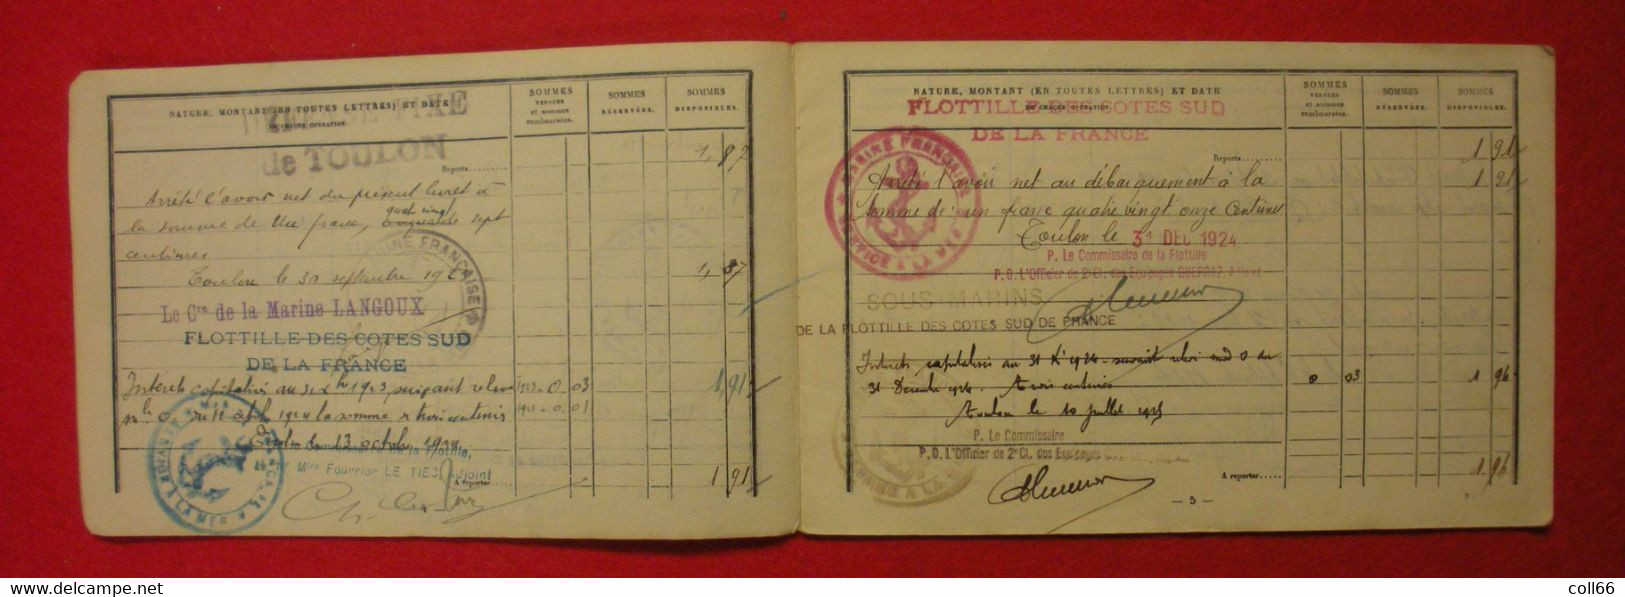 NATURE, MONTANT (EN TOUTES LETTRES) ET DATE
DE CHAQUE OPÉRATION.
SOMMES
VERSÉES
et sommes
remboursées.
SOMMES
RÉSERVÉES.
SOMMES
DISPONIBLES.
FIXE
de TOULON
Reports
1,87
Arrêté l'avoir net du présent livret à
la somme de Un franc, quatre vingt cinquante sept
centimes
Toulon le 30 septembre
1,87
MARINE FRANÇAISE
Le Cre de la Marine LANGOUX
FLOTTILLE DES COTES SUD
DE LA FRANCE
Intérêts capitalisés au 31 Xbre 1923, suivant relevé
1923 - 0,03
1,91
du 11 avril 1924 la somme de trois centimes
0,01
Toulon le 13 octobre 1924
Commissaire de la Flottille,
Mtre Fourrier LE TIEC Adjoint
A reporter
1,91
A LA MER
NATURE, MONTANT (EN TOUTES LETTRES) ET DATE
DE CHAQUE OPÉRATION.
SOMMES
VERSÉES
et sommes
remboursées.
SOMMES
RÉSERVÉES.
SOMMES
DISPONIBLES.
FLOTTILLE DES COTES SUD
DE LA FRANCE
MARINE FRANÇAISE
SERVICE A LA MER
Reports
1 91
Arrêté l'avoir net au débarquement à la
1 91
somme de: un franc quatre vingt onze centimes
Toulon le 31 DEC 1924
P. Le Commissaire de la Flottille
P.O. L'Officier de 2e Cl. des Equipages GUERRAZ, Adjoint
SOUS-MARINS
DE LA FLOTTILLE DES COTES SUD DE FRANCE
Intérêts capitalisés au 31 Xe 1924 suivant relevé mod 0 du
31 Décembre 1924. Trois centimes
0 03
1 94
Toulon le 10 juillet 1925
P. Le Commissaire
P.O. L'Officier de 2e Cl. des Equipages
A reporter
1 94
— 5 —
delcampe.net
coll66